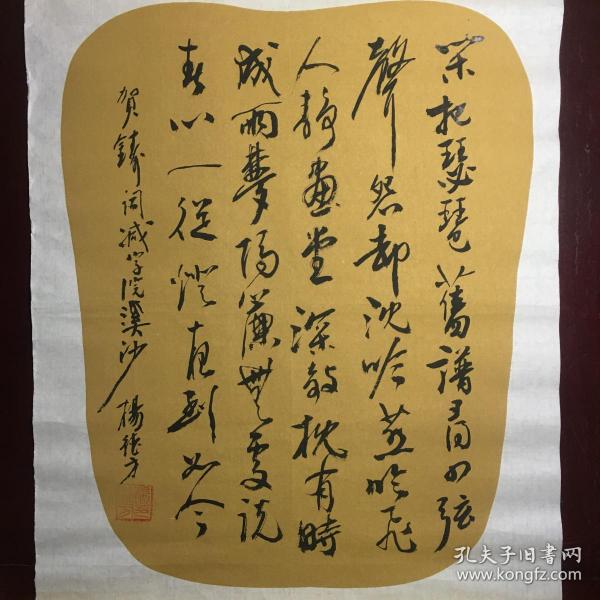 閑把琵琶舊譜尋四弦
聲怨却沈吟燕飛
人静畫堂深敧枕有時
成雨夢隔簾無處説
春心一從燈夜到如今
賀鑄詞减字浣溪沙 楊
孔夫子旧书网
www.kongfz.com